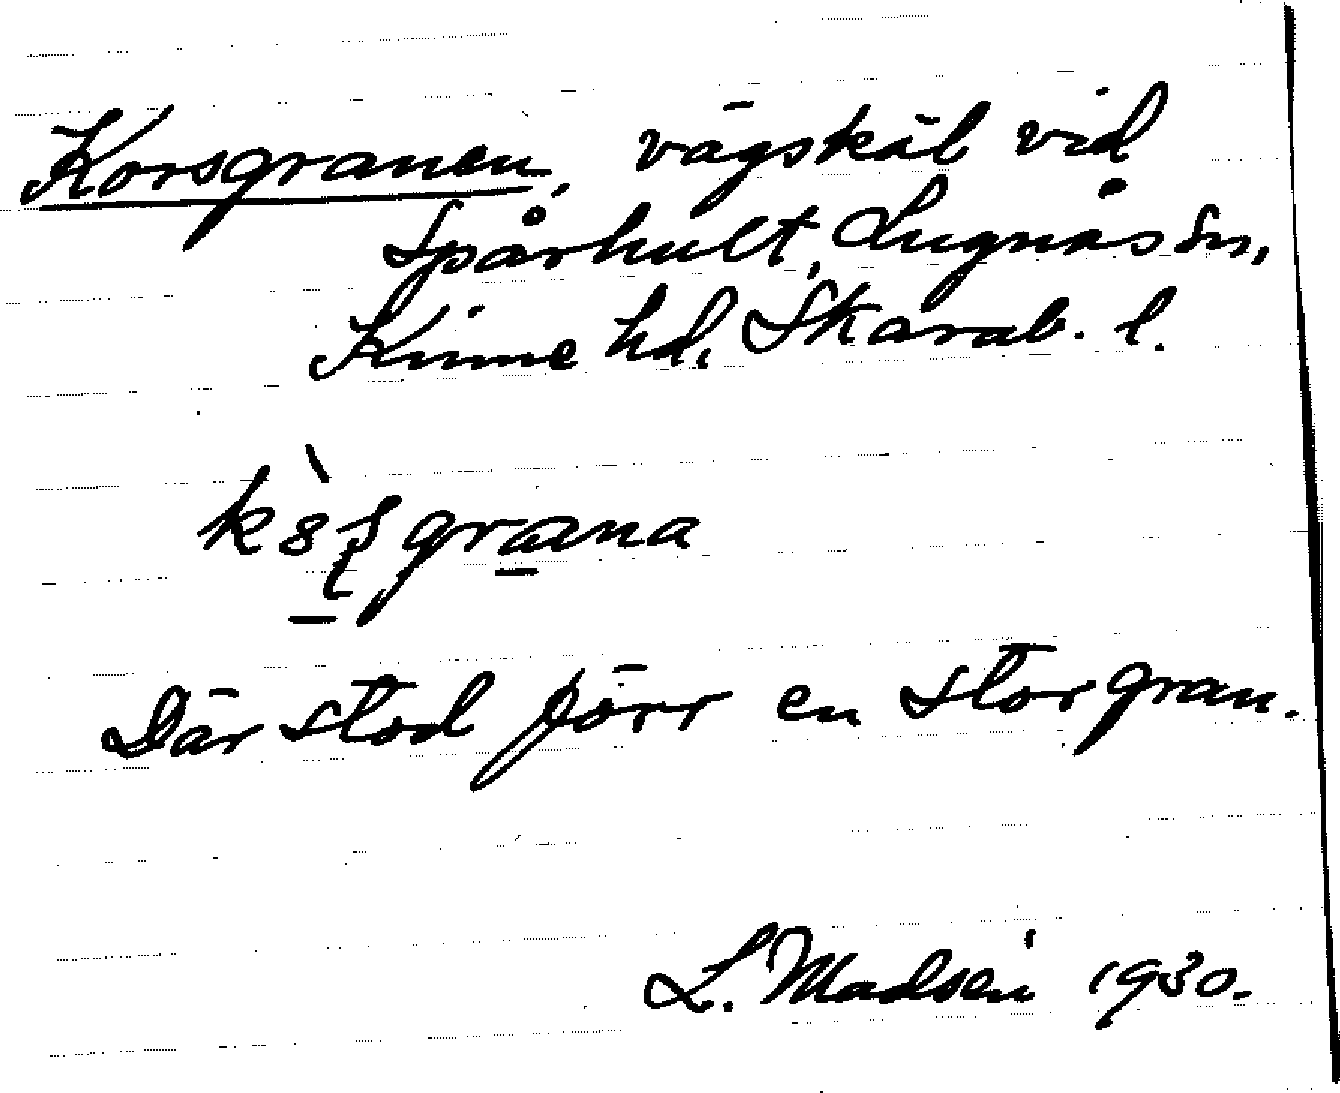 Korsgranen, vägskäl vid
Spårhult, Lugnås sn,
Kinne hd, Skarab. l.
Där stod förr en stor gran.
L. Madsén 1930.